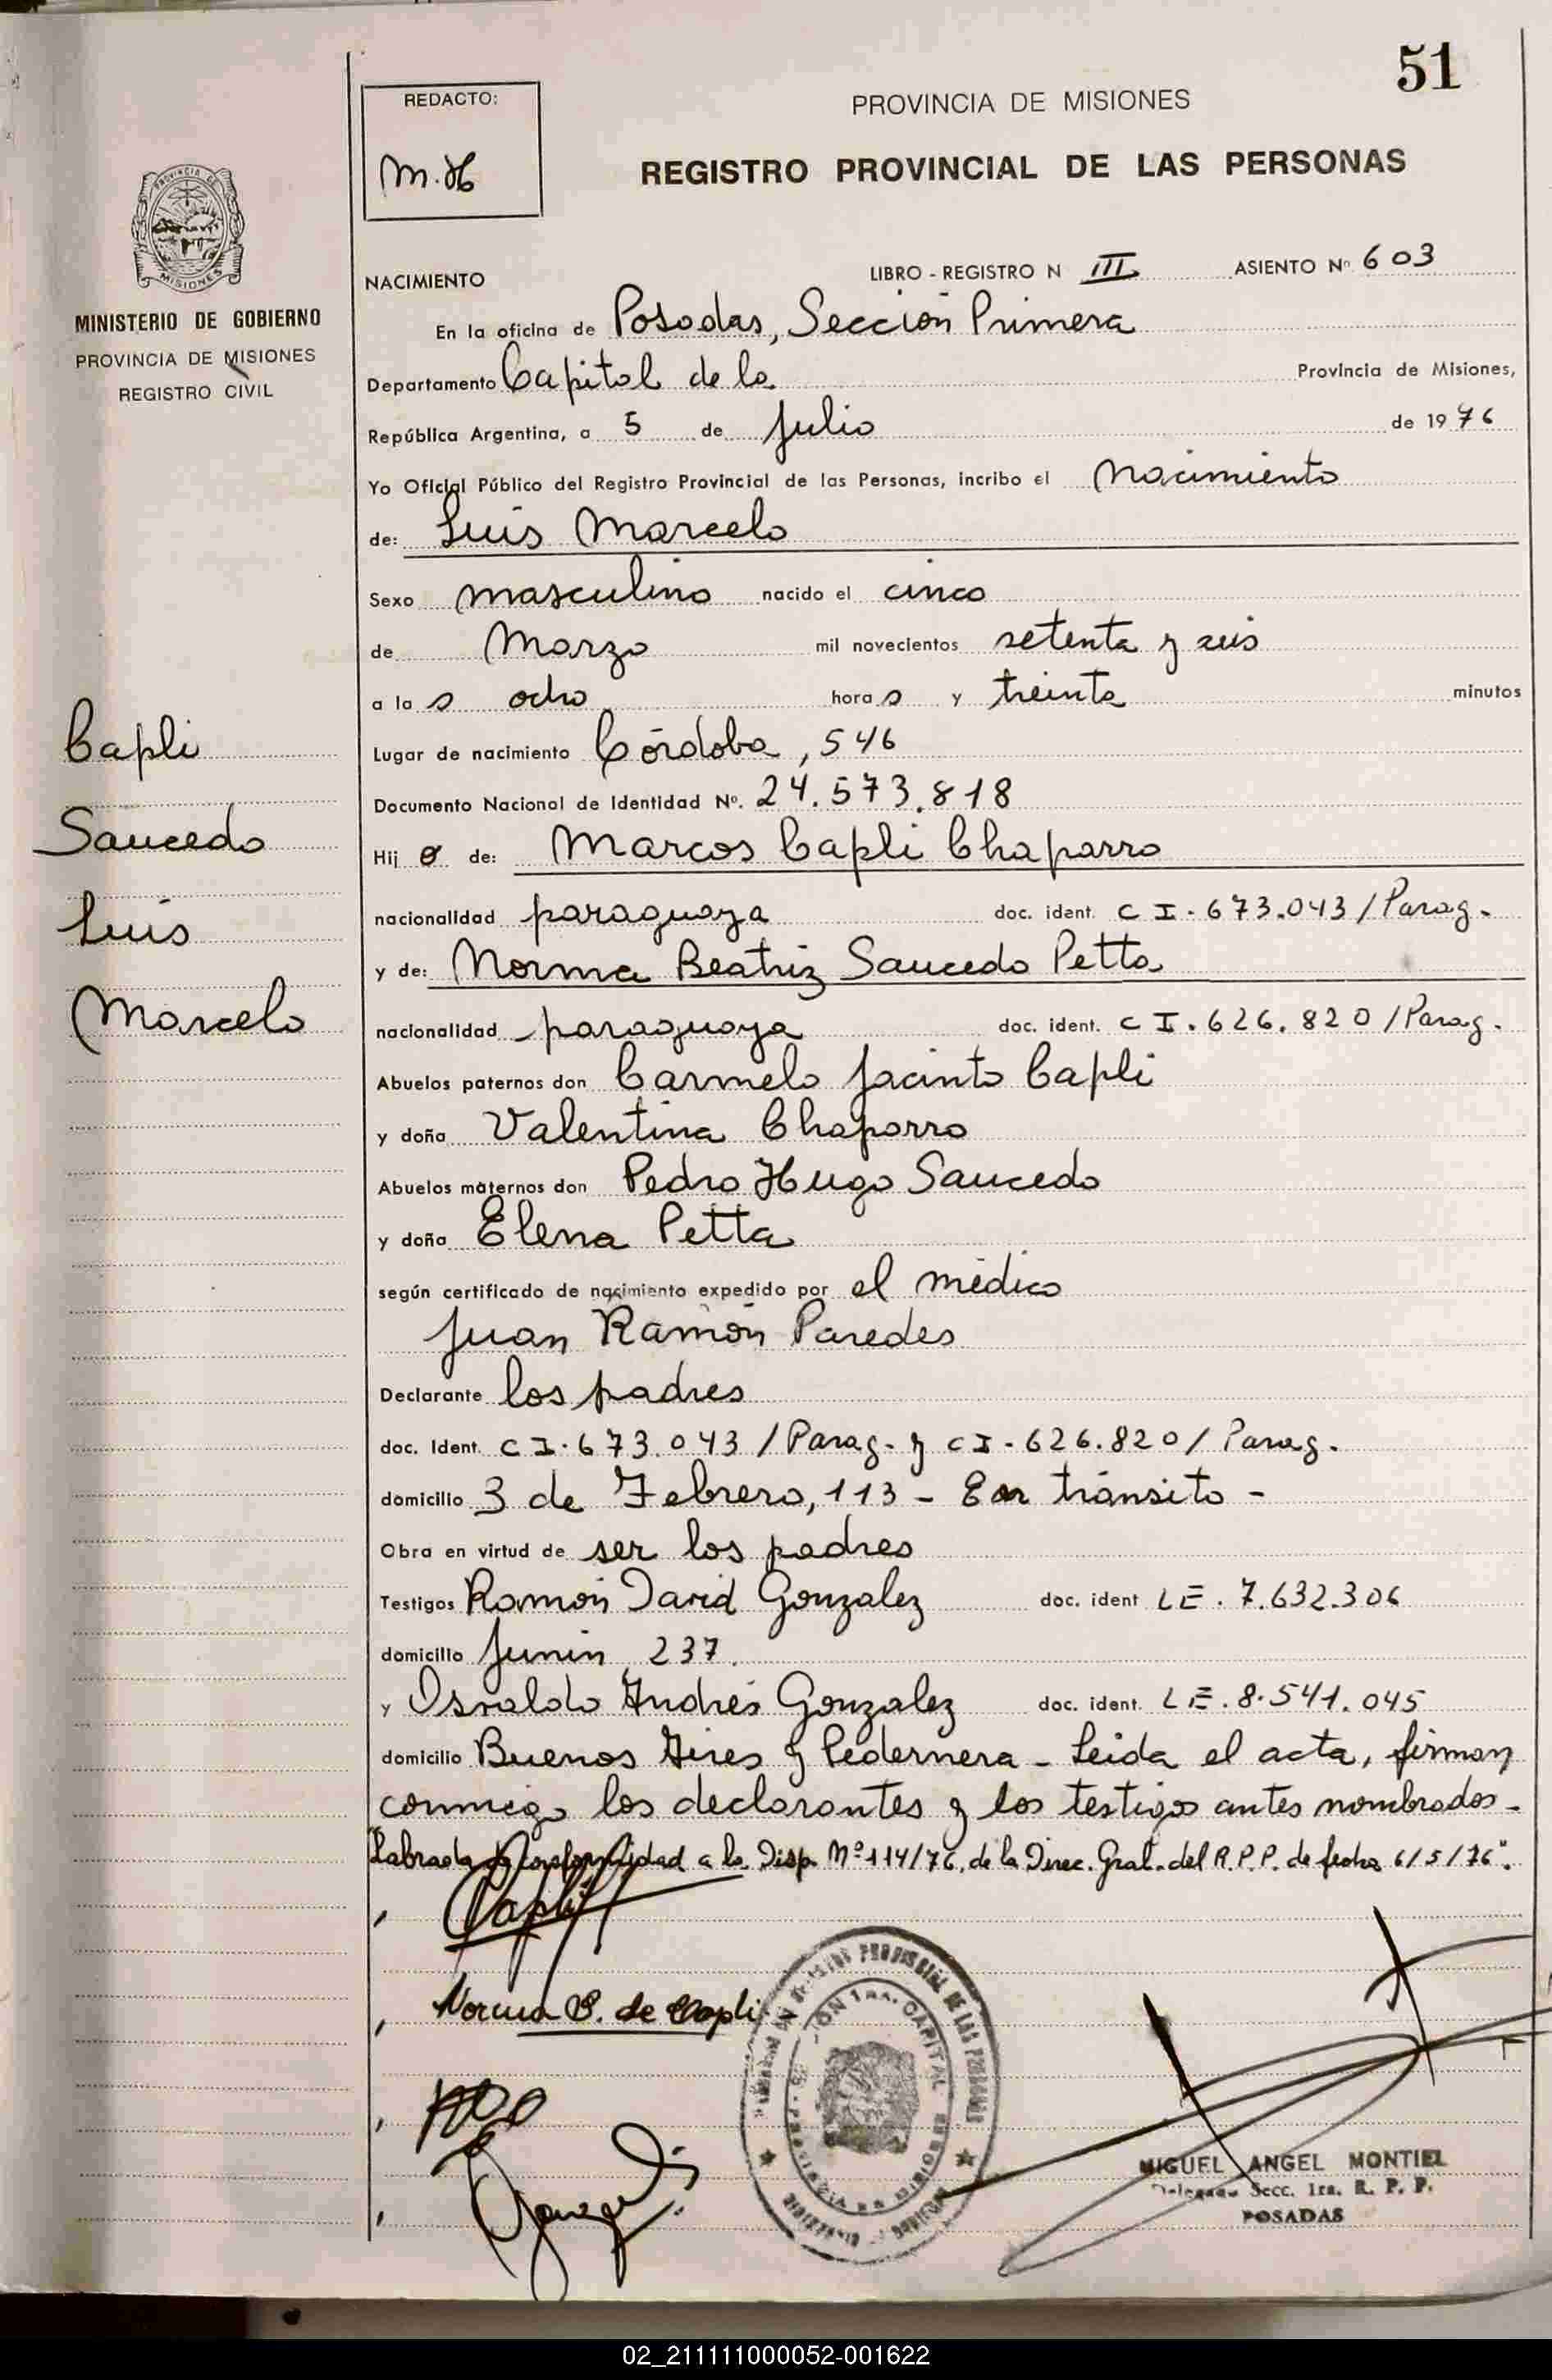 51
REDACTO:
M.H
PROVINCIA DE MISIONES
REGISTRO PROVINCIAL DE LAS PERSONAS
MINISTERIO DE GOBIERNO
PROVINCIA DE MISIONES
REGISTRO CIVIL
NACIMIENTO LIBRO - REGISTRO N III ASIENTO Nº 603
En la oficina de Posadas, Sección Primera
Departamento Capital de la Provincia de Misiones,
República Argentina, a 5 de Julio de 1976
Yo Oficial Público del Registro Provincial de las Personas, incribo el nacimiento
de: Luis Marcelo
Sexo masculino nacido el cinco
de Marzo mil novecientos setenta y seis
a las ocho horas y treinta minutos
Lugar de nacimiento Córdoba, 546
Documento Nacional de Identidad Nº. 24.573.818
Hijo de: Marcos Capli Chaparro
nacionalidad paraguaya doc. ident. CI. 673.043/Parag.
y de: Norma Beatriz Saucedo Petta
nacionalidad paraguaya doc. ident. CI. 626.820/Parag.
Abuelos paternos don Carmelo Jacinto Capli
y doña Valentina Chaparro
Abuelos maternos don Pedro Hugo Saucedo
y doña Elena Petta
según certificado de nacimiento expedido por el médico
Juan Ramón Paredes
Declarante los padres
doc. Ident. CI. 673.043/Parag. y CI. 626.820/Parag.
domicilio 3 de Febrero, 113 - En tránsito -
Obra en virtud de ser los padres
Testigos Ramón David Gonzalez doc. ident LE. 7.632.306
domicilio Junín, 237.
y Osvaldo Andrés Gonzalez doc. ident. LE. 8.541.045
domicilio Buenos Aires y Pedernera - Leida el acta, firman
conmigo los declarantes y los testigos antes nombrados.
Labrada de conformidad a la Disp. Nº 114/76, de la Direc. Gral. del R.P.P. de fecha 6/5/76".
Capli
Saucedo
Luis
Marcelo
Capli
Norma S. de Capli
MIGUEL ANGEL MONTIEL
Delegado Secc. 1ra. R. P. P.
POSADAS
02_211111000052-001622